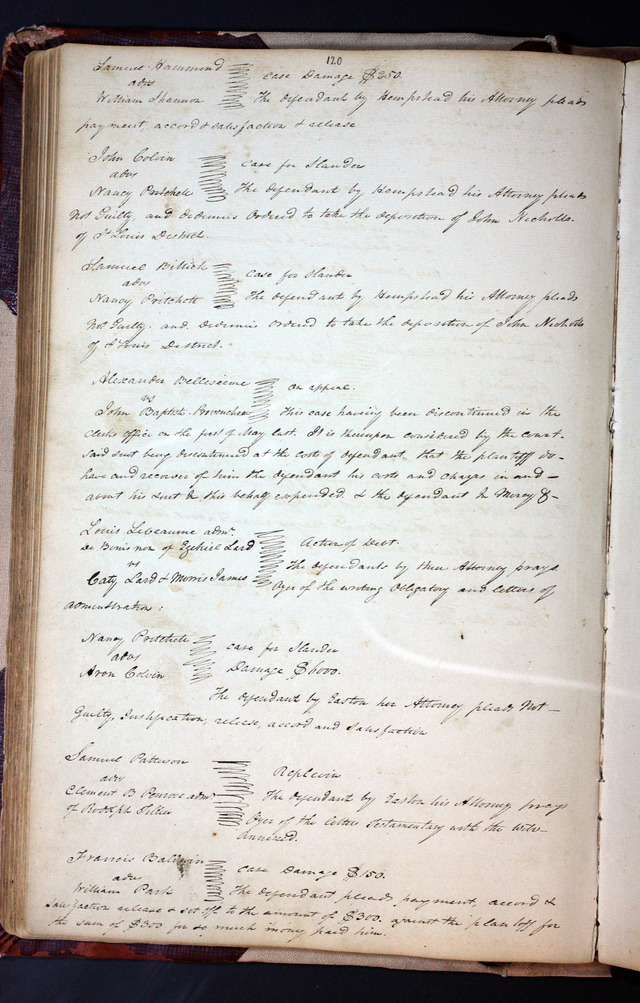 120
Samuel Hammond
ads
William Shannon
Case Damage $250.
The defendant by Hempstead his Attorney pleads
payment, accord & satisfaction & release
John Colvin
ads
Nancy Pritchett
Case for Slander
The defendant by Hempstead his Attorney pleads
Not Guilty, and Dedimus Ordered to take the deposition of John Nicholls
of St Louis District.
Samuel Bittick
ads
Nancy Pritchett
Case for Slander
The defendant by Hempstead his Attorney pleads
Not Guilty. and Dedimus ordered to take the deposition of John Nicholls
of St Louis District.
Alexander Bellesieme
vs
John Baptiste Provencher
On appeal.
This case having been discontinued in the
Clerks office on the first of May last. It is thereupon considered by the court.
said suit being discontinued at the costs of defendant, that the plaintiff do
have and recover of him the defendant his costs and charges in and
about his suit in this behalf expended. & the defendant in Mercy &
Louis Lebeaume admr.
De Bonis non of Ezekiel Lard
vs
Caty Lard & Morris James
Action of Debt.
The defendants by their Attorney prays
Oyer of the writing Obligatory and letters of
administration:
Nancy Pritchett
ads
Aron Colvin
Case for Slander
Damage $6000.
The defendant by Easton her Attorney pleads Not
Guilty, Justification, release, accord and satisfaction
Samuel Patterson
ads
Clement B Penrose admr
of Rodolph
Replevin
The defendant by Easton his Attorney prays
Oyer of the letters Testamentary with the Will
Annexed.
Francis Baldwin
ads
William Park
Case Damage $150.
The defendant pleads, payment, accord &
satisfaction release & set off to the amount of $300. against the plaintiff for
the sum of $300 for so much money paid him.